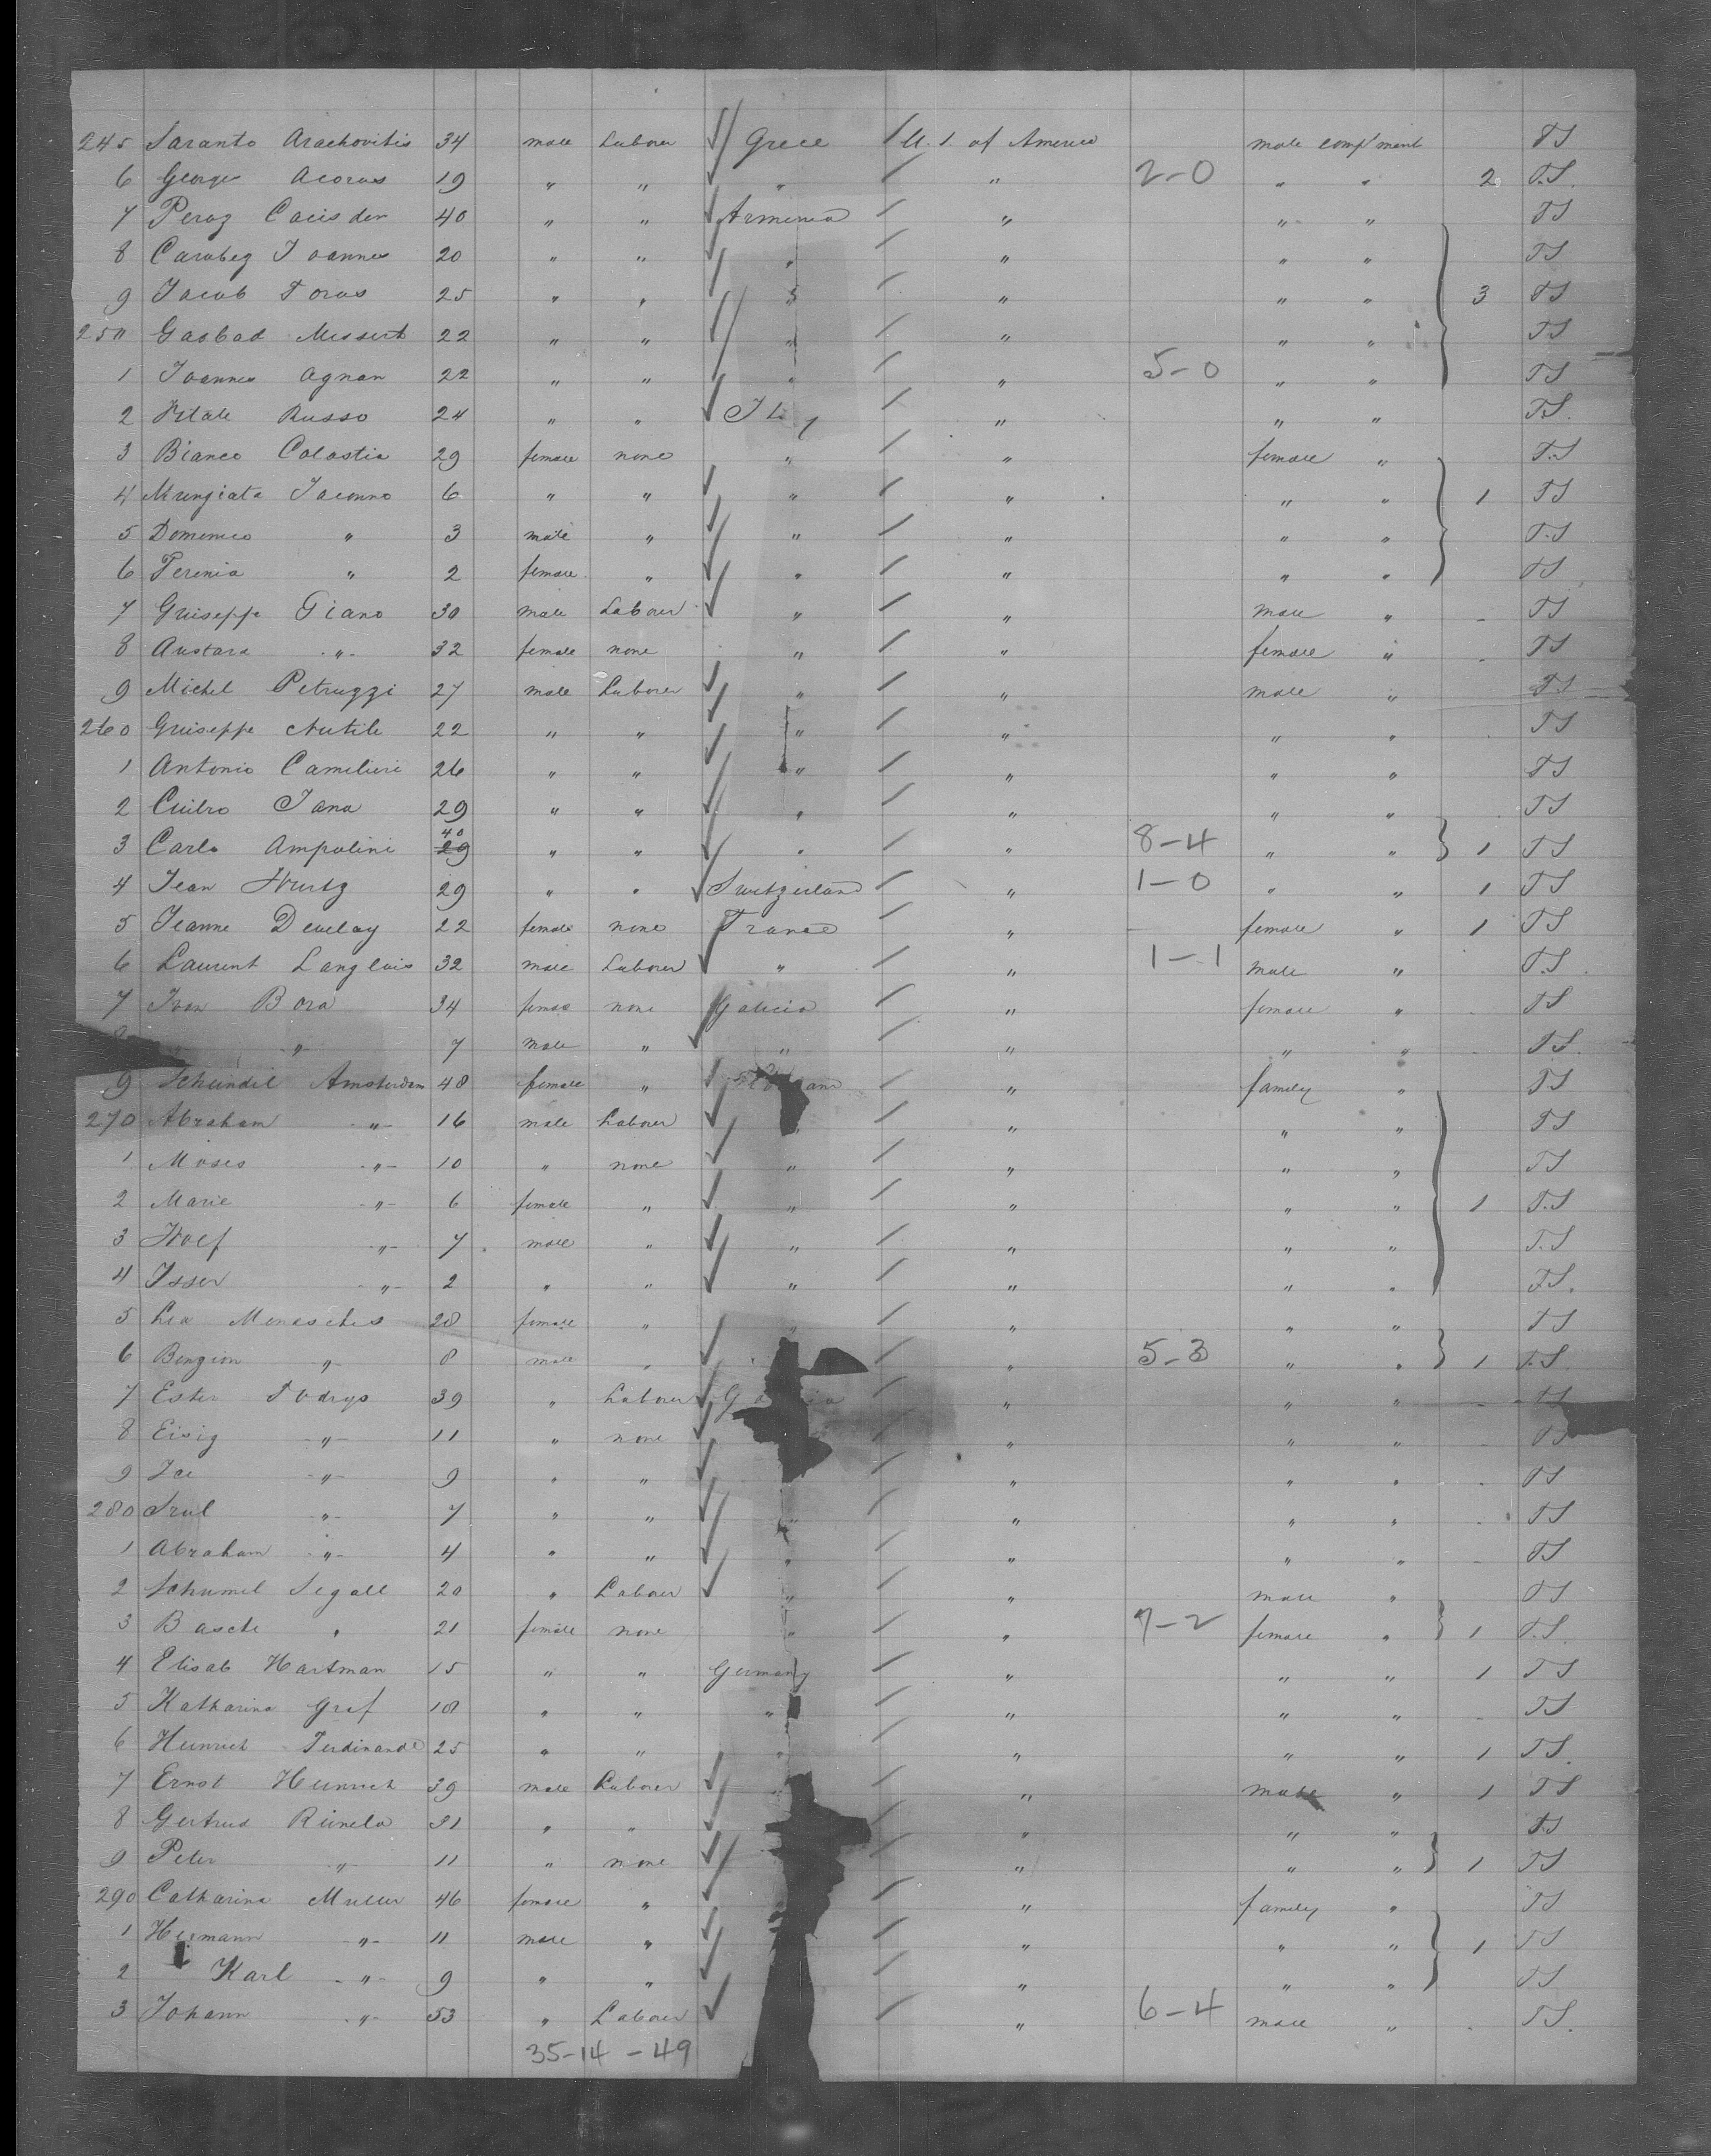 245 Saranto Arachovitis 34 male Laborer Grece U. S. of America male comp'ment TS
6 George Acoras 19 " " " " 2-0 " " 2 T.S.
7 Peroz 40 " " Armenia " " " TS
8 Carabeg Joannes 20 " " " " " " TS
9 Jacob Toros 25 " " " " " " 3 TS
250 Gasbad Messert 22 " " " " " " TS
1 Joannes Agnan 22 " " " " 5-0 " " TS
2 Vitale Russo 24 " " " " " T.S.
3 Bianco Colostia 29 female none " " female " T.S
4 Mungiata Jaconno 6 " " " " " " 1 TS
5 Domenico " 3 male " " " " " T.S
6 Terenia " 2 female " " " " " TS
7 Guiseppe Tiano 30 male Laborer " " male " TS
8 Austara " 32 female none " " female " TS
9 Michel Petruzzi 27 male Laborer " " male " TS
260 Guiseppe Nutile 22 " " " " " " TS
1 Antonio Camilieri 26 " " " " " " TS
2 Jana 29 " " " " " " TS
3 Carlo Ampolini 40 29 " " " " 8-4 " " 1 TS
4 Jean Wurtz 29 " " Switzerland " 1-0 " " 1 TS
5 Jeanne Develay 22 female none France " female " 1 TS
6 Laurent Langlois 32 male Laborer " " 1-1 male " T.S.
7 Ivan Bora 34 female none Galicia " female " TS
" 7 male " " " " " TS.
9 Scheindil Amsterdam 48 female " " family " TS
270 Abraham " 16 male Laborer " " " " TS
1 Moses " 10 " none " " " " TS
2 Marie " 6 female " " " " " 1 T.S
3 Wolf " 7 male " " " " " T.S
4 Isser " 2 " " " " " " TS.
5 Lia Menasches 28 female " " " " " TS
6 Benzion " 8 male " " 5-3 " " 1 T.S
7 Ester Podrys 39 " Laborer " " " TS
8 Eisig " 11 " none " " " TS
9 " 9 " " " " " TS
280 Srul " 7 " " " " " " TS
1 Abraham " 4 " " " " " " TS
2 Schumel Segall 20 " Laborer " " male " TS
3 Basche " 21 female none " " 7-2 female " 1 T.S.
4 Elisab Hartman 15 " " Germany " " " 1 TS
5 Katharina Graf 18 " " " " " " TS
6 Heinrich Ferdinand 25 " " " " " " 1 TS.
7 Ernst Heinrich 39 male Laborer " " male " 1 TS
8 Gertrud 31 " " " " " TS
9 Peter " 11 " none " " " 1 TS
290 Catharina Muller 46 female " " family " TS
1 Hermann " 11 male " " " " 1 TS
2 Karl " 9 " " " " " TS
3 Johann " 53 " Laborer " 6-4 male " TS.
35-14-49